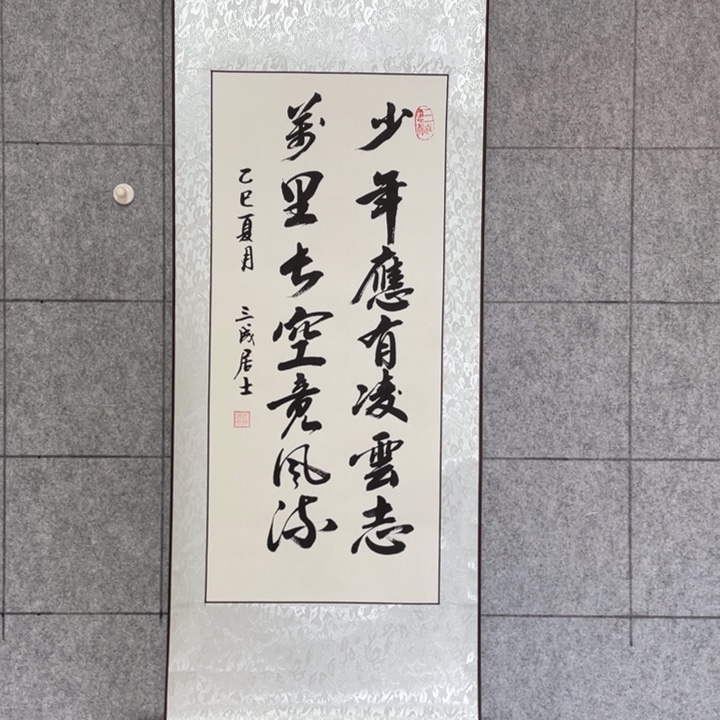 少年應有凌雲志
萬里長空竟風流
乙巳夏月 三成居士